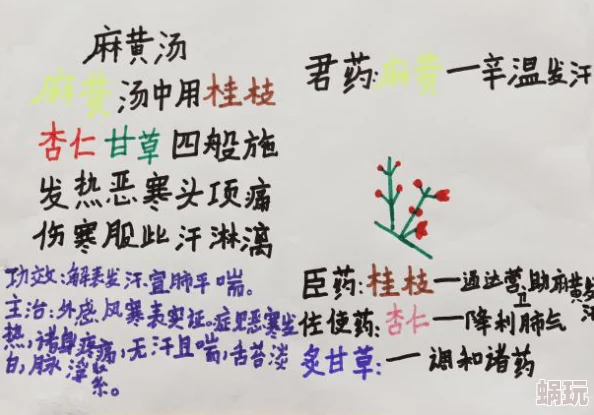 麻黄汤
麻黄汤中用桂枝
杏仁甘草四般施
发热恶寒头项痛
伤寒服此汗淋漓
功效:解表发汗,宣肺平喘。
主治:外感风寒表实证。症见恶寒发
热,诸身疼痛,无汗且喘,舌苔淡
白,脉浮紧。
君药:麻黄一辛温发汗
臣药:桂枝一通达营卫助麻黄发汗
佐使药:杏仁一降利肺气
炙甘草:一调和诸药
蜗玩